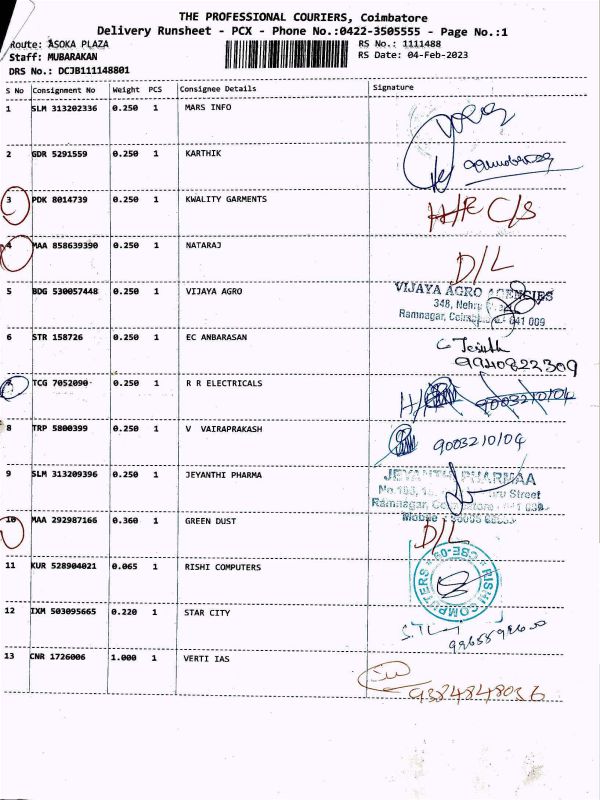 THE PROFESSIONAL COURIERS, Coimbatore
Delivery Runsheet - PCX - Phone No.:0422-3505555 - Page No.:1
Route: ASOKA PLAZA
RS No.: 1111488
Staff: MUBARAKAN
RS Date: 04-Feb-2023
DRS No.: DCJB111148801
S No Consignment No Weight PCS Consignee Details Signature
1 SLM 313202336 0.250 1 MARS INFO
2 GDR 5291559 0.250 1 KARTHIK
3 PDK 8014739 0.250 1 KWALITY GARMENTS
C/S
4 MAA 858639390 0.250 1 NATARAJ
D/L
5 BDG 530057448 0.250 1 VIJAYA AGRO
VIJAYA AGRO AGENCIES
348, Nehru
Ramnagar, 641 009
6 STR 158726 0.250 1 EC ANBARASAN
9940822309
7 TCG 7052090 0.250 1 R R ELECTRICALS
9003210104
8 TRP 5800399 0.250 1 V VAIRAPRAKASH
9003210104
9 SLM 313209396 0.250 1 JEYANTHI PHARMA
JEYANTHI PHARMAA
Street
Ramnagar,
Mobile
10 MAA 292987166 0.360 1 GREEN DUST
D/L
11 KUR 528904021 0.065 1 RISHI COMPUTERS
RISHI COMPUTERS CBE-09
12 IXM 503095665 0.220 1 STAR CITY
13 CNR 1726006 1.000 1 VERTI IAS
9384848036